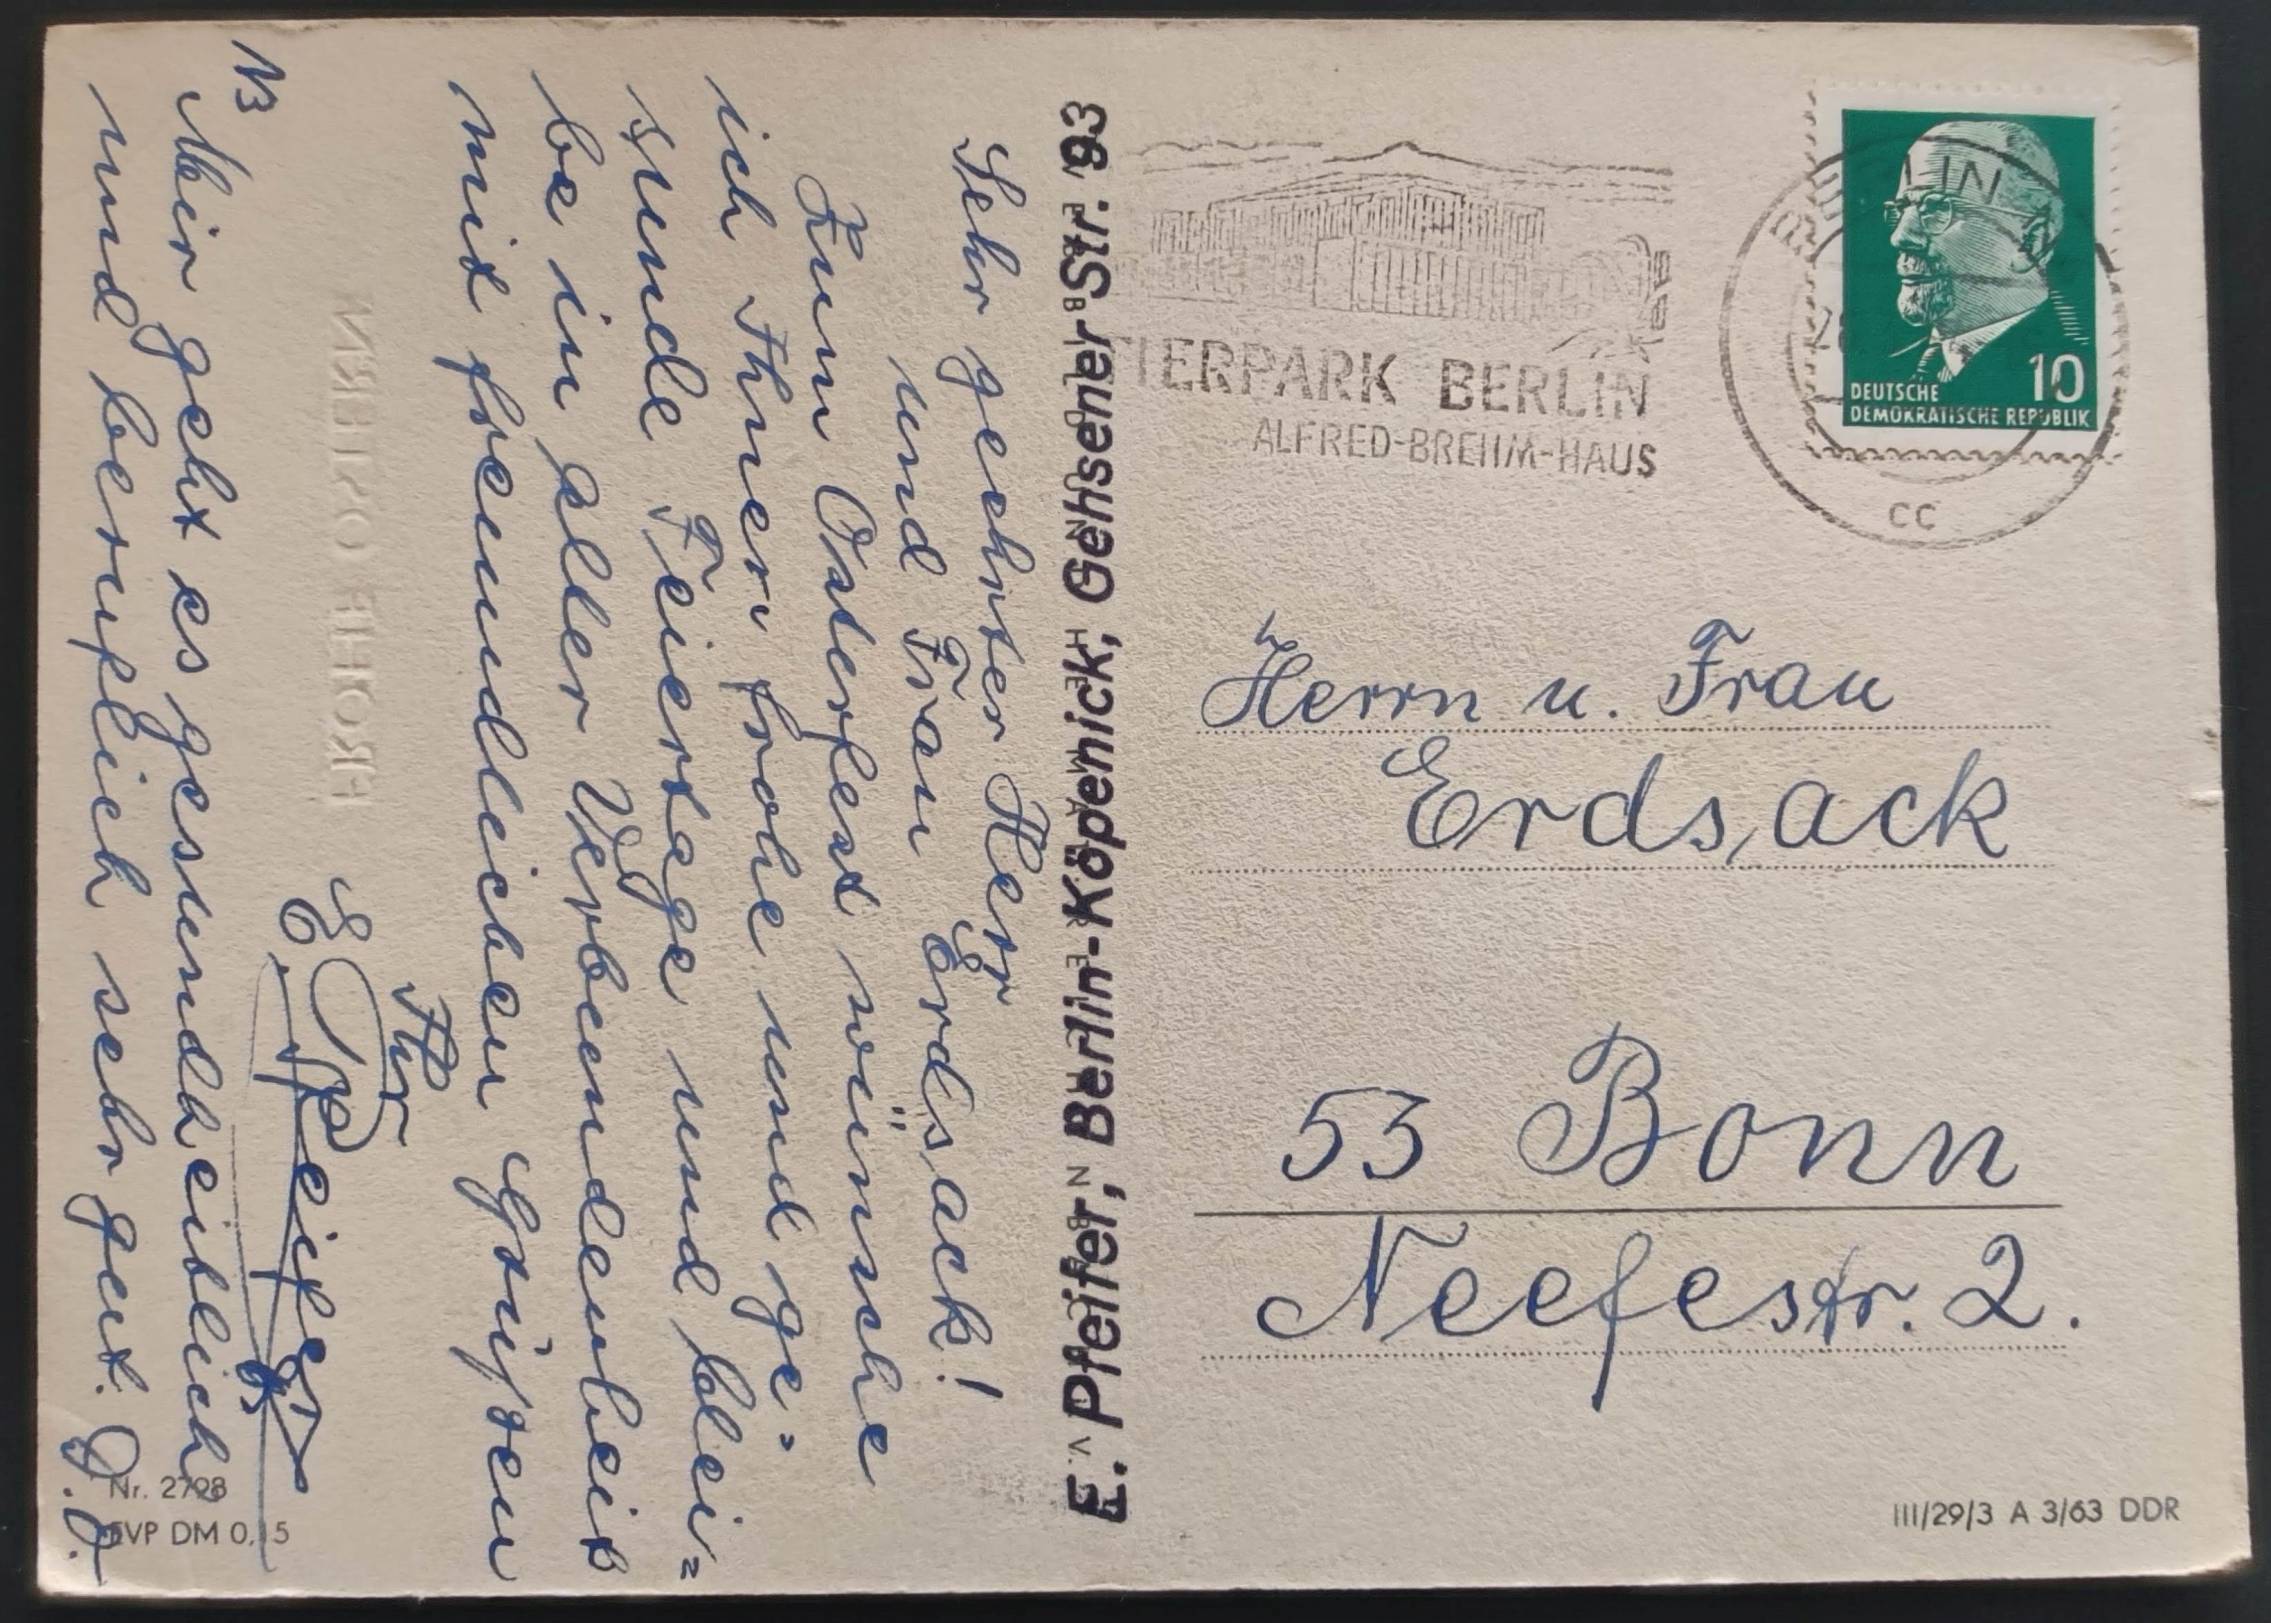 Sehr geehrter Herr
und Frau Erdsack!
Zum Osterfest wünsche
ich Ihnen frohe und ge=
sunde Feiertage und blei=
be in aller Verbundenheit
mit freundlichen Grüßen
Ihr
E. Pfeifer
NB
Mir geht es gesundheitlich
und beruflich sehr gut. D.O.
FROHE OSTERN
Nr. 2798
EVP DM 0,15
E. Pfeifer, Berlin-Köpenick, Gehsener Str. 93
TIERPARK BERLIN
ALFRED-BREHM-HAUS
BERLIN
CC
10
DEUTSCHE
DEMOKRATISCHE REPUBLIK
Herrn u. Frau
Erdsack
53 Bonn
Neefestr. 2.
III/29/3 A 3/63 DDR